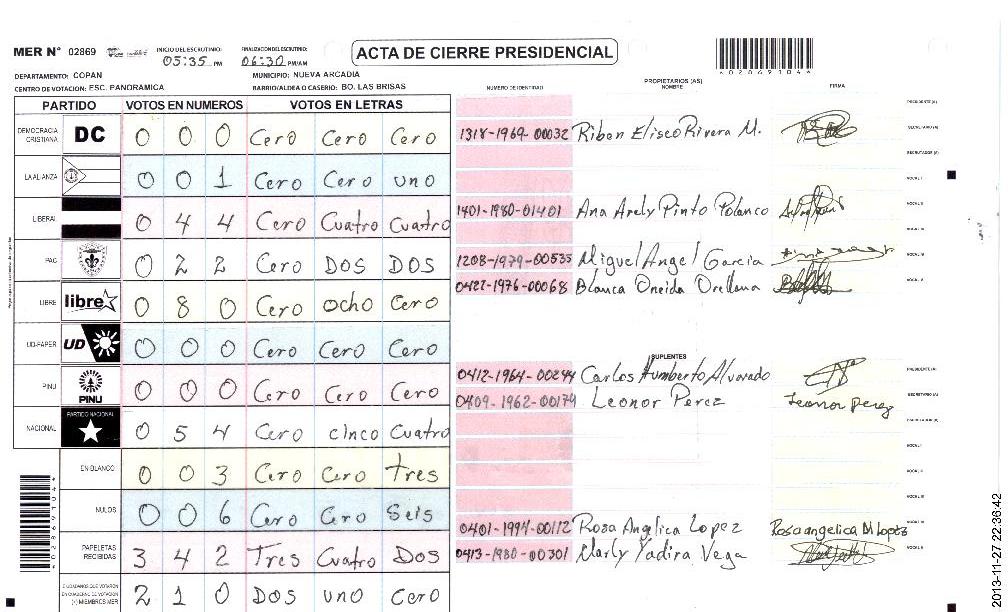 MER N° 02869
INICIO DEL ESCRUTINIO: 05:35 PM
FINALIZACION DEL ESCRUTINIO: 06:30 PM/AM
ACTA DE CIERRE PRESIDENCIAL
4028691044
DEPARTAMENTO: COPAN
MUNICIPIO: NUEVA ARCADIA
CENTRO DE VOTACION: ESC. PANORAMICA
BARRIO/ALDEA O CASERIO: BO. LAS BRISAS
NUMERO DE IDENTIDAD
PROPIETARIOS (AS)
NOMBRE
FIRMA
PARTIDO VOTOS EN NUMEROS VOTOS EN LETRAS
DEMOCRACIA CRISTIANA DC 0 0 0 Cero Cero Cero
LA ALIANZA 0 0 1 Cero Cero uno
LIBERAL 0 4 4 Cero Cuatro Cuatro
PAC 0 2 2 Cero DOS DOS
LIBRE libre 0 8 0 Cero ocho Cero
UD-FAPER UD 0 0 0 Cero Cero Cero
PINU PINU 0 0 0 Cero Cero Cero
NACIONAL PARTIDO NACIONAL 0 5 4 Cero cinco Cuatro
EN BLANCO 0 0 3 Cero Cero tres
NULOS 0 0 6 Cero Cero Seis
PAPELETAS RECIBIDAS 3 4 2 Tres Cuatro Dos
CIUDADANOS QUE VOTARON EN CUADERNO DE VOTACION (+) MIEMBROS MER 2 1 0 DOS uno Cero
PRESIDENTE (A)
1318-1969-00032 Riben Eliseo Rivera M. SECRETARIO (A)
ESCRUTADOR (A)
VOCAL I
1401-1980-01401 Ana Arely Pinto Polanco VOCAL II
VOCAL III
1208-1979-00535 Miguel Angel Garcia VOCAL IV
0421-1976-00068 Blanca Oneida Orellana VOCAL V
SUPLENTES
0412-1964-00244 Carlos Humberto Alvarado PRESIDENTE (A)
0409-1962-00179 Leonor Perez Leonor perez SECRETARIO (A)
ESCRUTADOR (A)
VOCAL I
VOCAL II
VOCAL III
0401-1994-00112 Rosa Angelica Lopez Rosa angelica M Lopez VOCAL IV
0413-1980-00301 Marly Yadira Vega VOCAL V
4028691044
2013-11-27 22:36:42